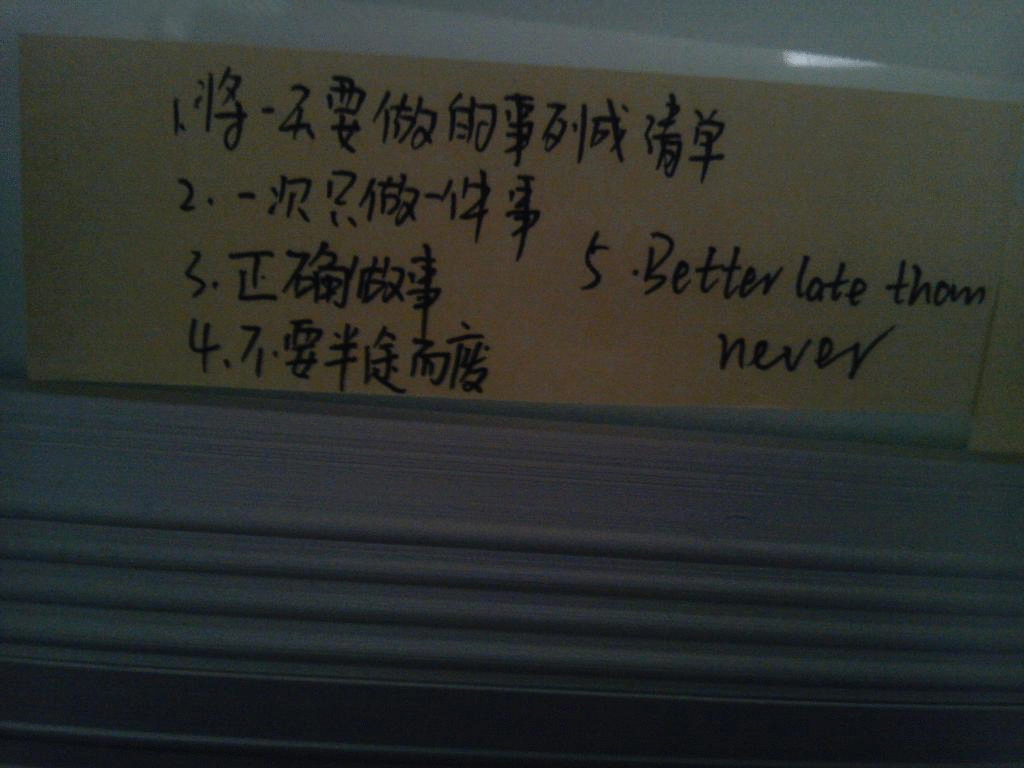 1.将一天要做的事列成清单
2.一次只做一件事
3.正确做事
4.不要半途而废
5.Better late than
never